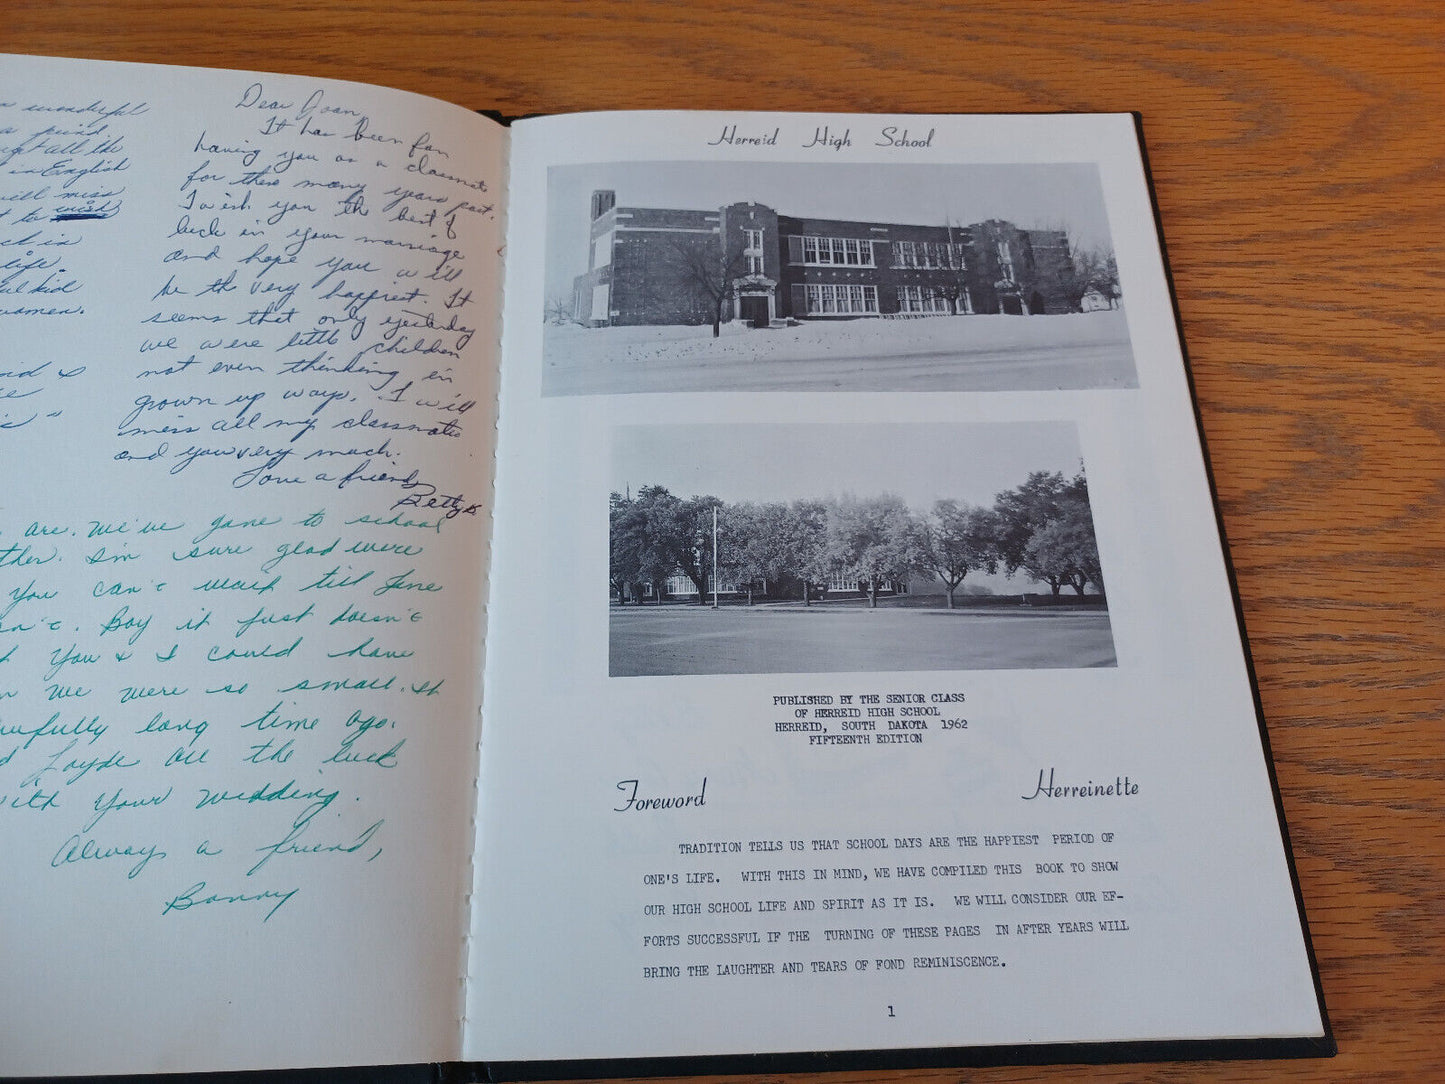 wonderful
a
all the
in English
will miss
to wish
in
life.
kid
women.
Dear Joan,
It has been fun
having you as a classmate
for these many years past.
I wish you the best of
luck in your marriage
and hope you will
be the very happiest. It
seems that only yesterday
we were little children
not even thinking in
grown up ways. I will
miss all my classmates
and you very much.
Love a friend,
Betty K
are. We've gone to school
I'm sure glad were
you can't wait till June
Boy it just doesn't
you & I could have
we were so small. It
awfully long time ago.
Loyde all the luck
with your wedding.
Always a friend,
Bonny
Herreid High School
PUBLISHED BY THE SENIOR CLASS
OF HERREID HIGH SCHOOL
HERREID, SOUTH DAKOTA 1962
FIFTEENTH EDITION
Foreword
Herreinette
TRADITION TELLS US THAT SCHOOL DAYS ARE THE HAPPIEST PERIOD OF
ONE'S LIFE. WITH THIS IN MIND, WE HAVE COMPILED THIS BOOK TO SHOW
OUR HIGH SCHOOL LIFE AND SPIRIT AS IT IS. WE WILL CONSIDER OUR EF-
FORTS SUCCESSFUL IF THE TURNING OF THESE PAGES IN AFTER YEARS WILL
BRING THE LAUGHTER AND TEARS OF FOND REMINISCENCE.
1